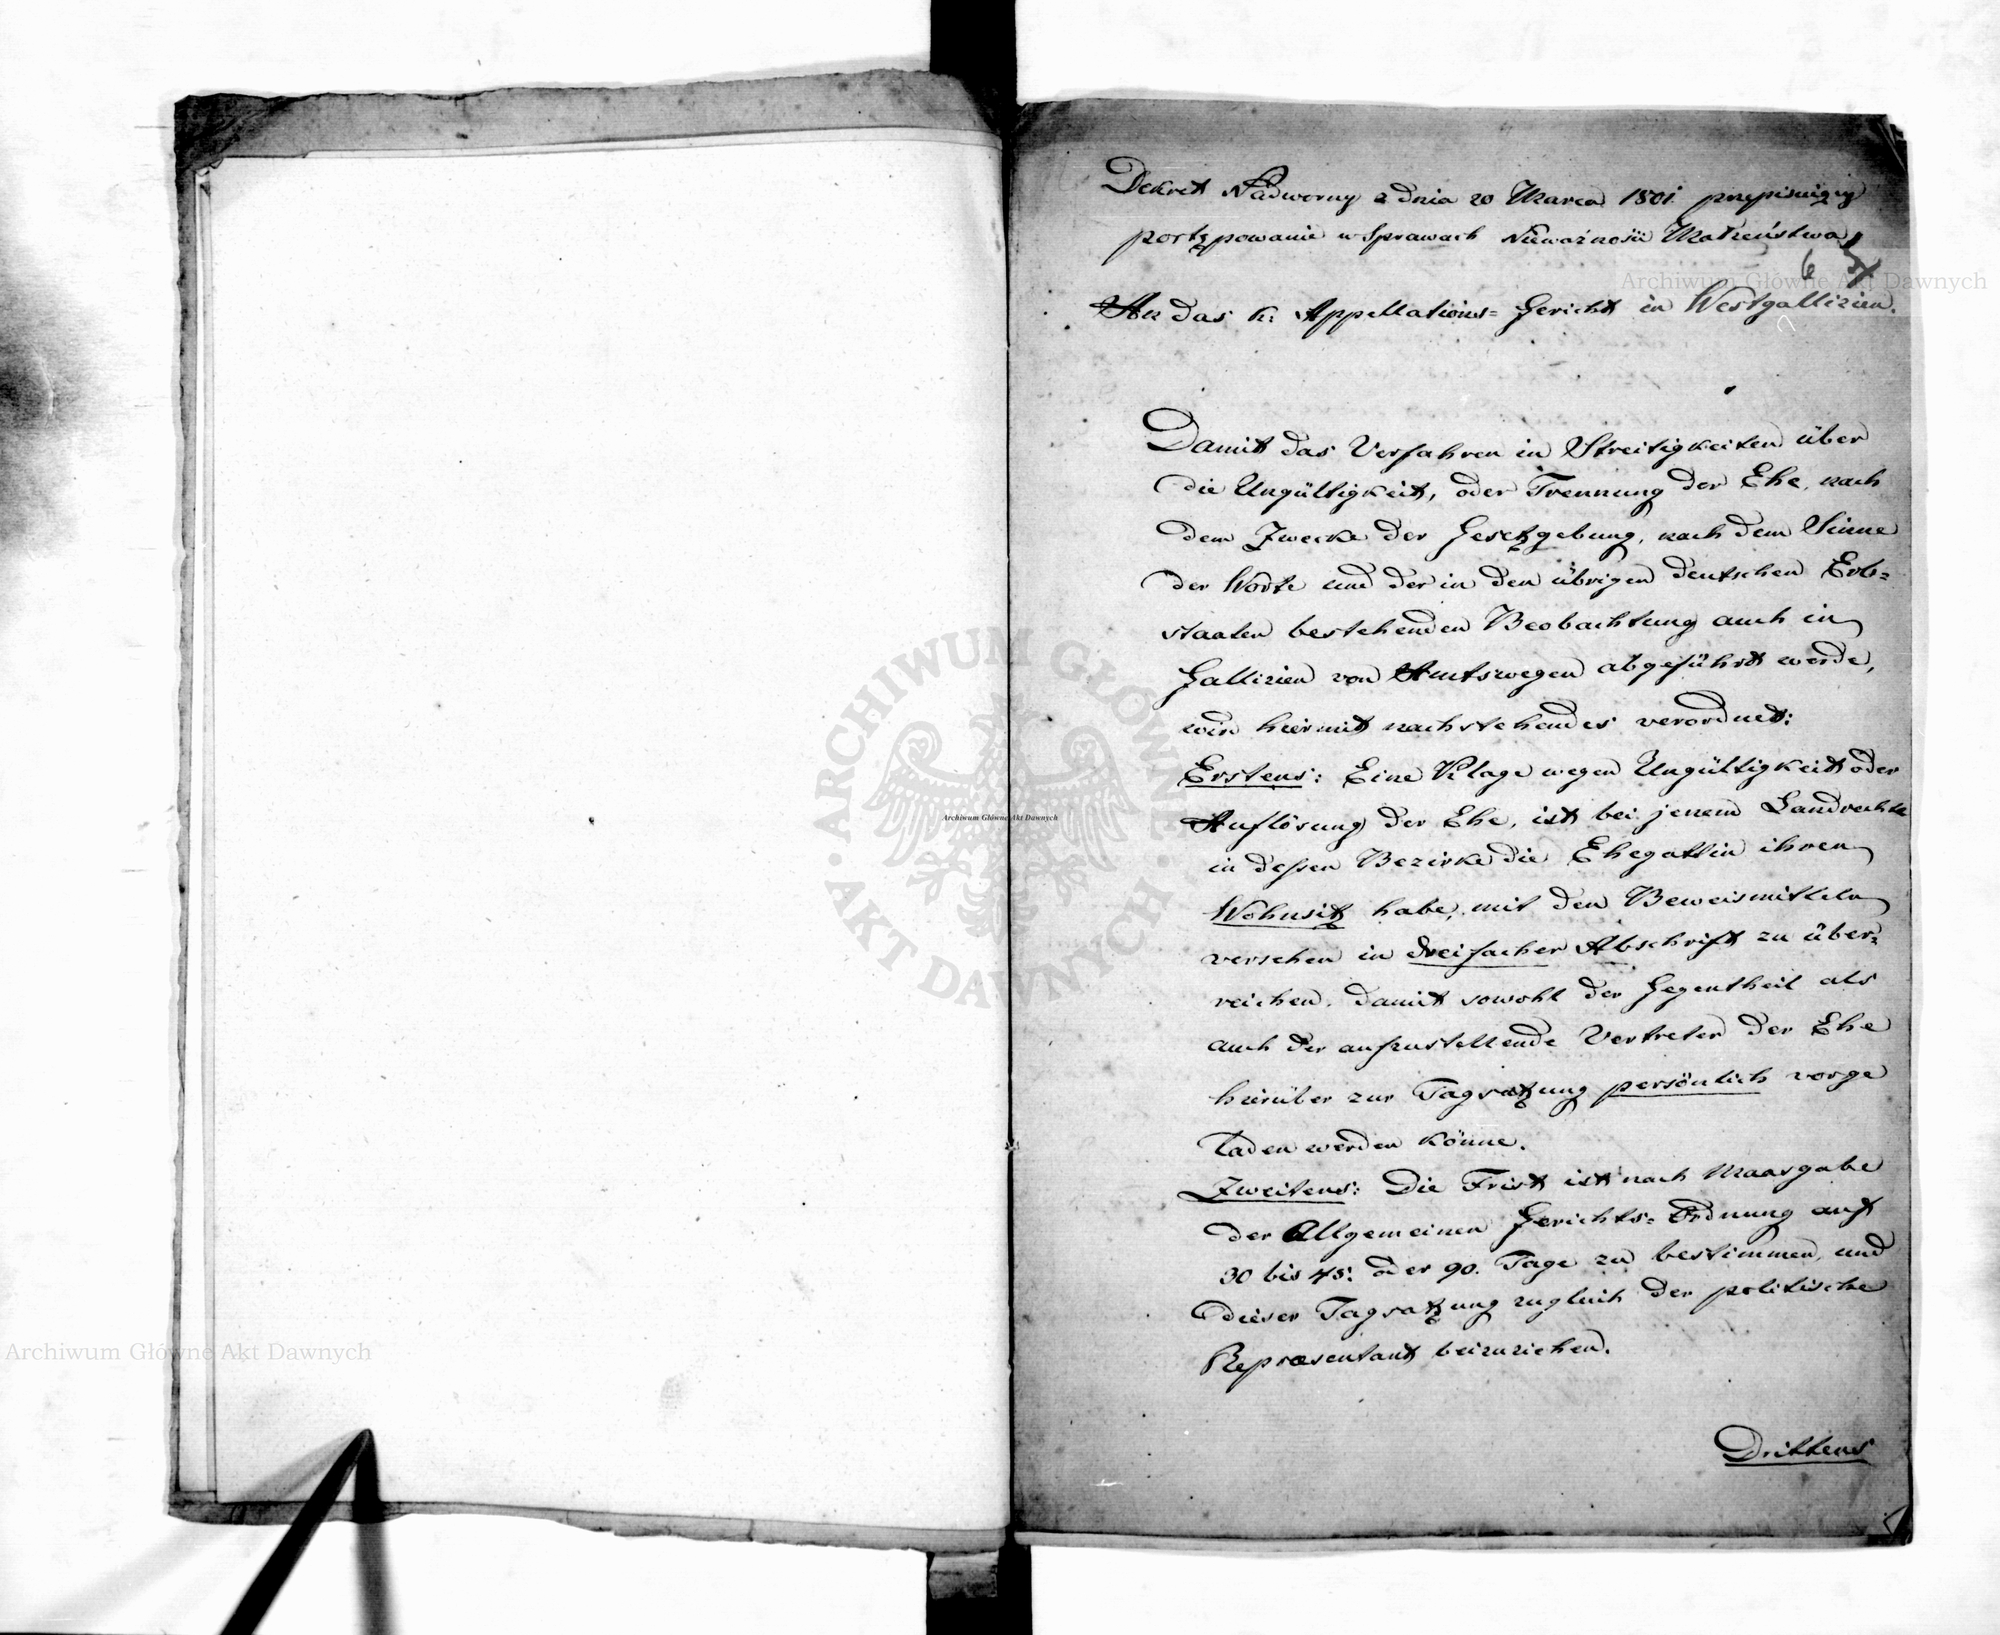 Dekret Nadworny z dnia 20 Marca 1801 przepisuięcy
postępowanie w Sprawach Nieważności Małżeństwa
6
Archiwum Główne Akt Dawnych
An das k: Appellations= Gericht in Westgallizien.
Damit das Verfahren in Streitigkeiten über
die Ungültigkeit, oder Trennung der Ehe, nach
dem Zwecke der Gesetzgebung, nach dem Sinne
der Worte und der in den übrigen deutschen Erb=
staaten bestehenden Beobachtung auch in
Gallizien von Amtswegen abgeführt werde,
wird hiermit nachstehendes verordnet:
Erstens: Eine Klage wegen Ungültigkeit oder
Auflösung der Ehe, ist bei jenem Landrechte
in deßen Bezirke die Ehegattin ihren
Wohnsitz habe, mit den Beweismitteln
versehen in dreifacher Abschrift zu über=
reichen, damit sowohl der Gegentheil als
auch der aufzustellende Vertreter der Ehe
hierüber zur Tagsatzung persönlich vorge
laden werden könne.
Zweitens: Die Frist ist nach Maasgabe
der Allgemeinen Gerichts= Ordnung auf
30 bis 45: oder 90. Tage zu bestimmen, und
dieser Tagsatzung zugleich der politische
Repræsentant beizuziehen.
Drittens
ARCHIWUM GŁÓWNE AKT DAWNYCH
Archiwum Główne Akt Dawnych
Archiwum Główne Akt Dawnych